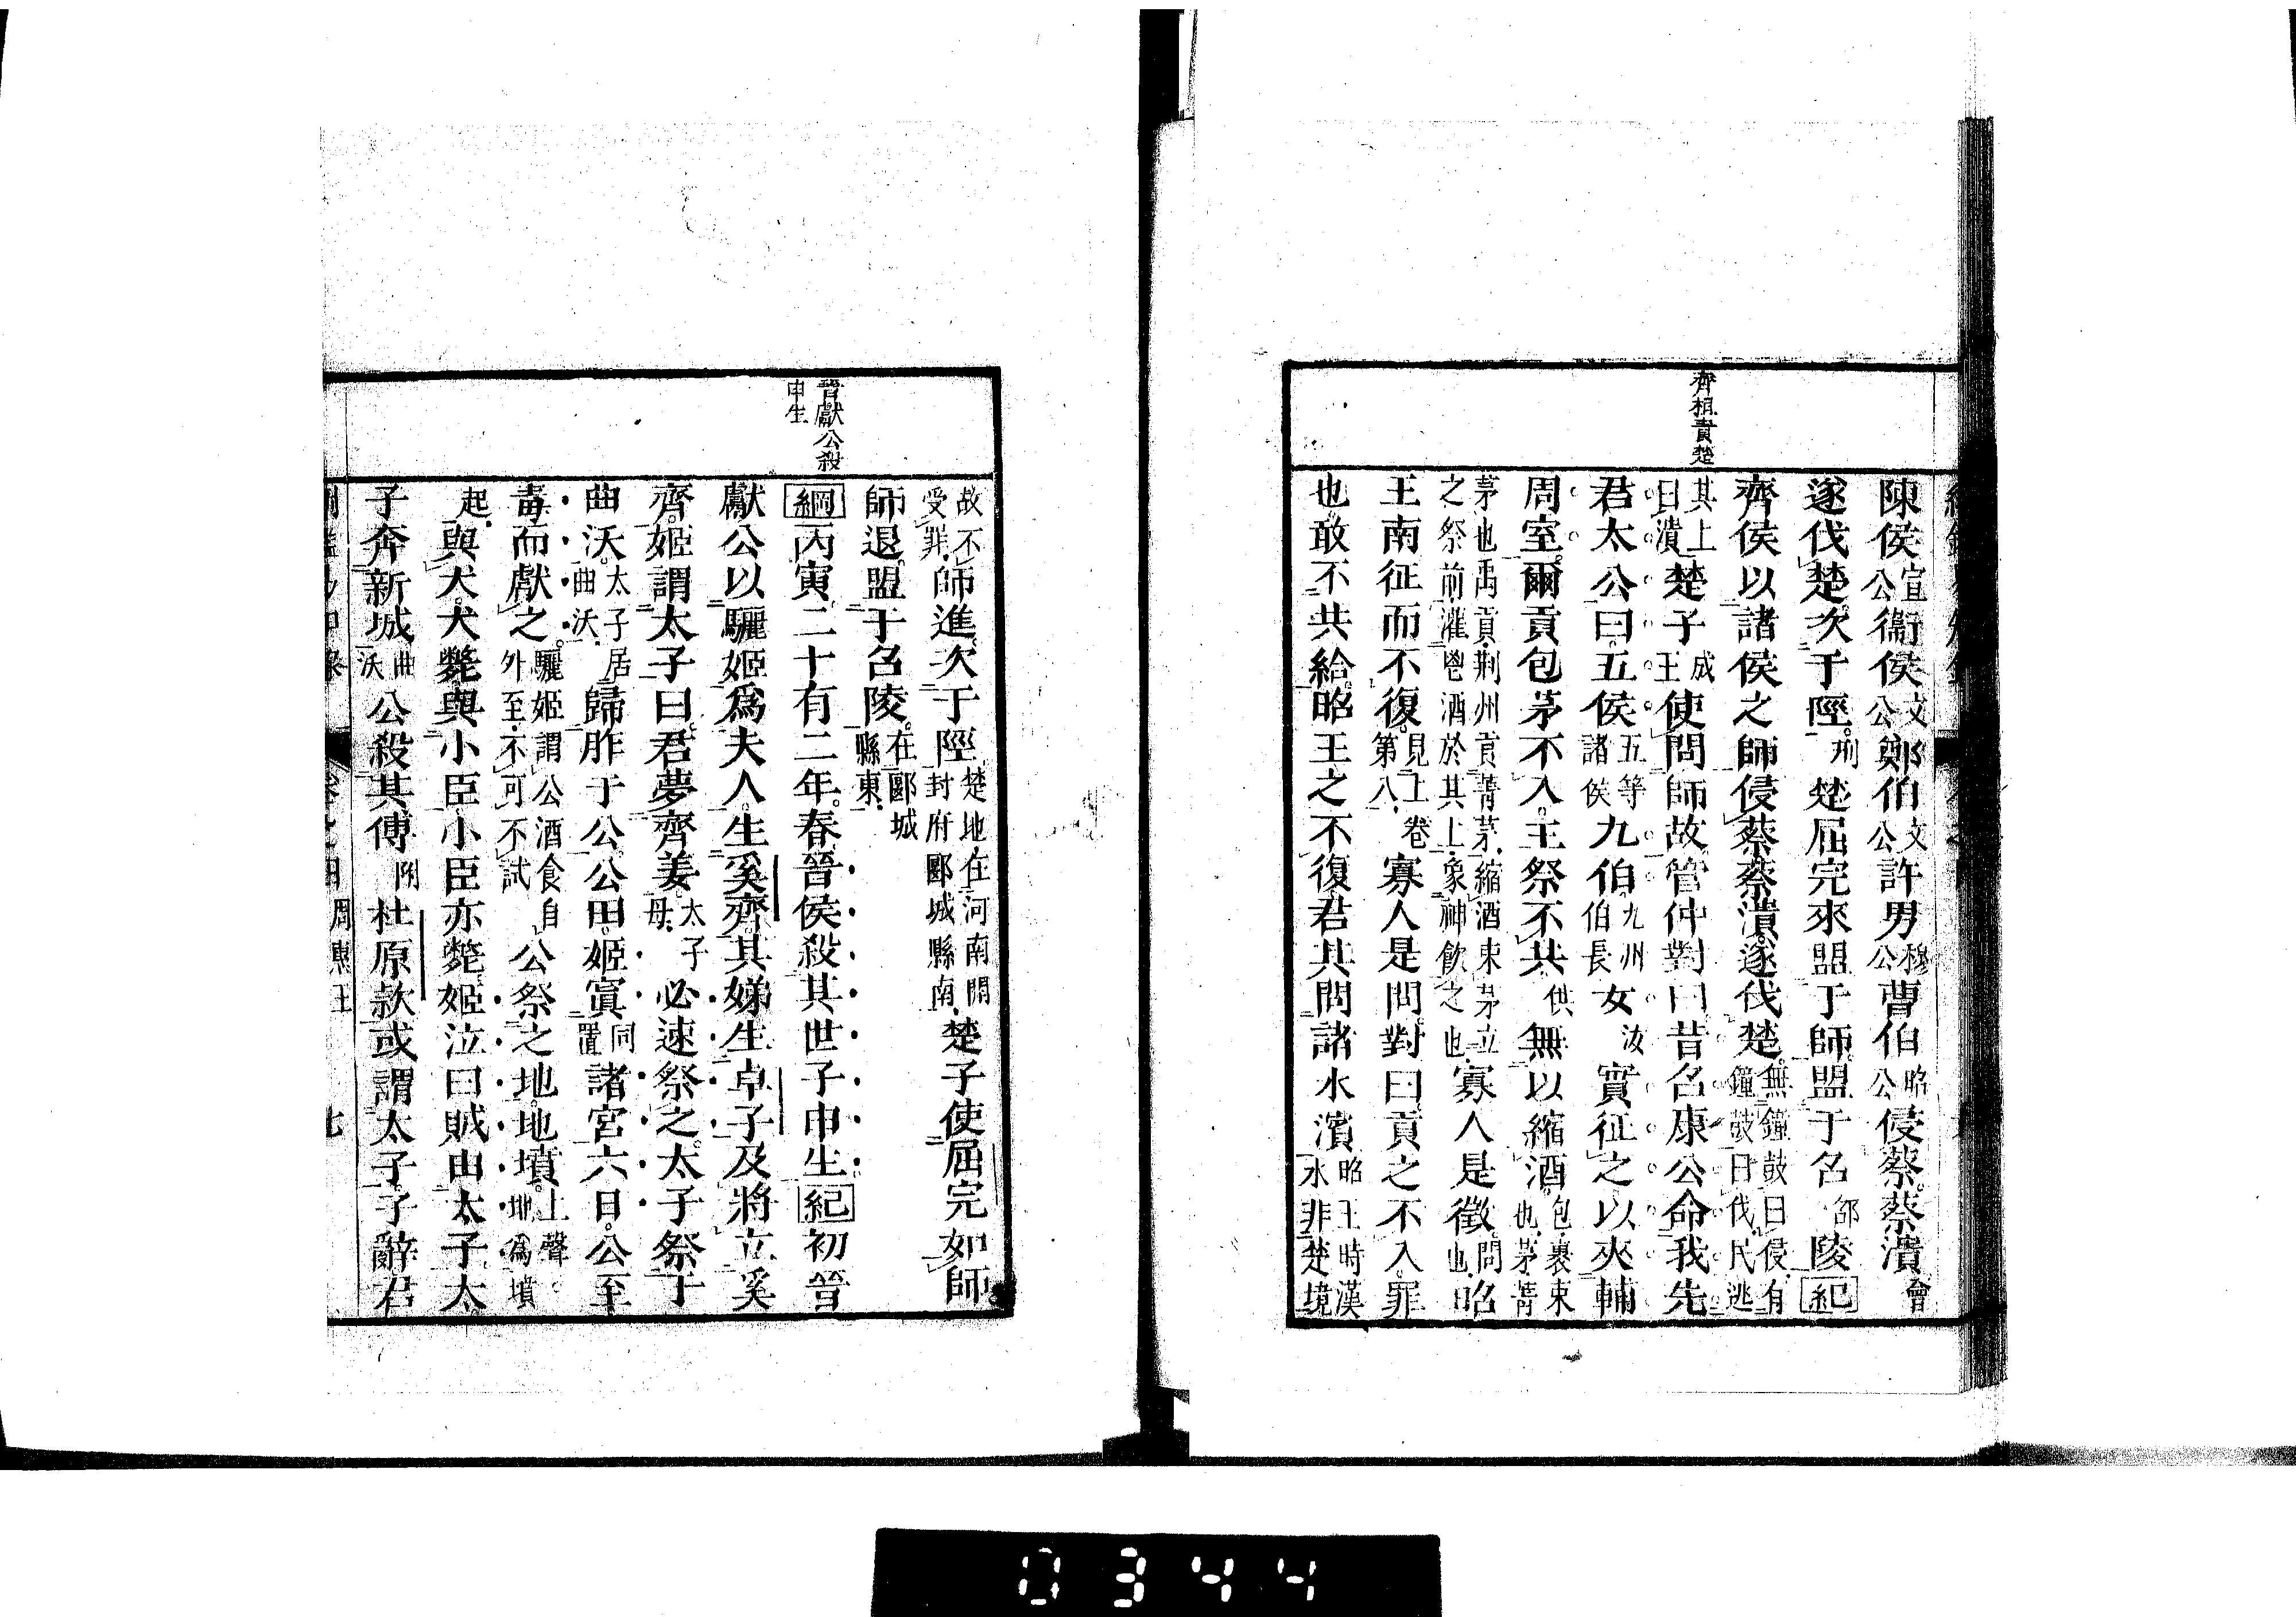 齊桓責楚
陳侯宣公衞侯文公鄭伯文公許男穆公曹伯昭公侵蔡蔡潰會
遂伐楚次于陘刑楚屈完來盟于師盟于召邵陵紀
齊侯以諸侯之師侵蔡蔡潰遂伐楚無鐘鼓曰侵有鐘鼓曰伐民逃
其上曰潰楚子成王使問師故管仲對曰昔召康公命我先
君太公曰五侯五等諸侯九伯九州伯長女汝實征之以夾輔
周室爾貢包茅不入王祭不共供無以縮酒包裹束也茅菁
茅也禹貢荆州貢菁茅縮酒束茅立之祭前灌鬯酒於其上象神飮之也寡人是徵問也昭
王南征而不復見上卷第八寡人是問對曰貢之不入罪
也敢不共給昭王之不復君其問諸水濱昭王時漢水非楚境
晉獻公殺
申生
故不受罪師進次于陘楚地在河南開封府郾城縣南楚子使屈完如師
師退盟于召陵在郾城縣東
綱丙寅二十有二年春晉侯殺其世子申生紀初晉
獻公以驪姬爲夫人生奚齊其娣生卓子及將立奚
齊姬謂太子曰君夢齊姜太子母必速祭之太子祭于
曲沃太子居曲沃歸胙于公公田姬寘同置諸宮六日公至
毒而獻之驪姬謂公酒食自外至不可不試公祭之地地墳上聲地爲墳
起與犬犬斃與小臣小臣亦斃姬泣曰賊由太子太
子奔新城曲沃公殺其傅附杜原款或謂太子子辭君
周惠王
0344